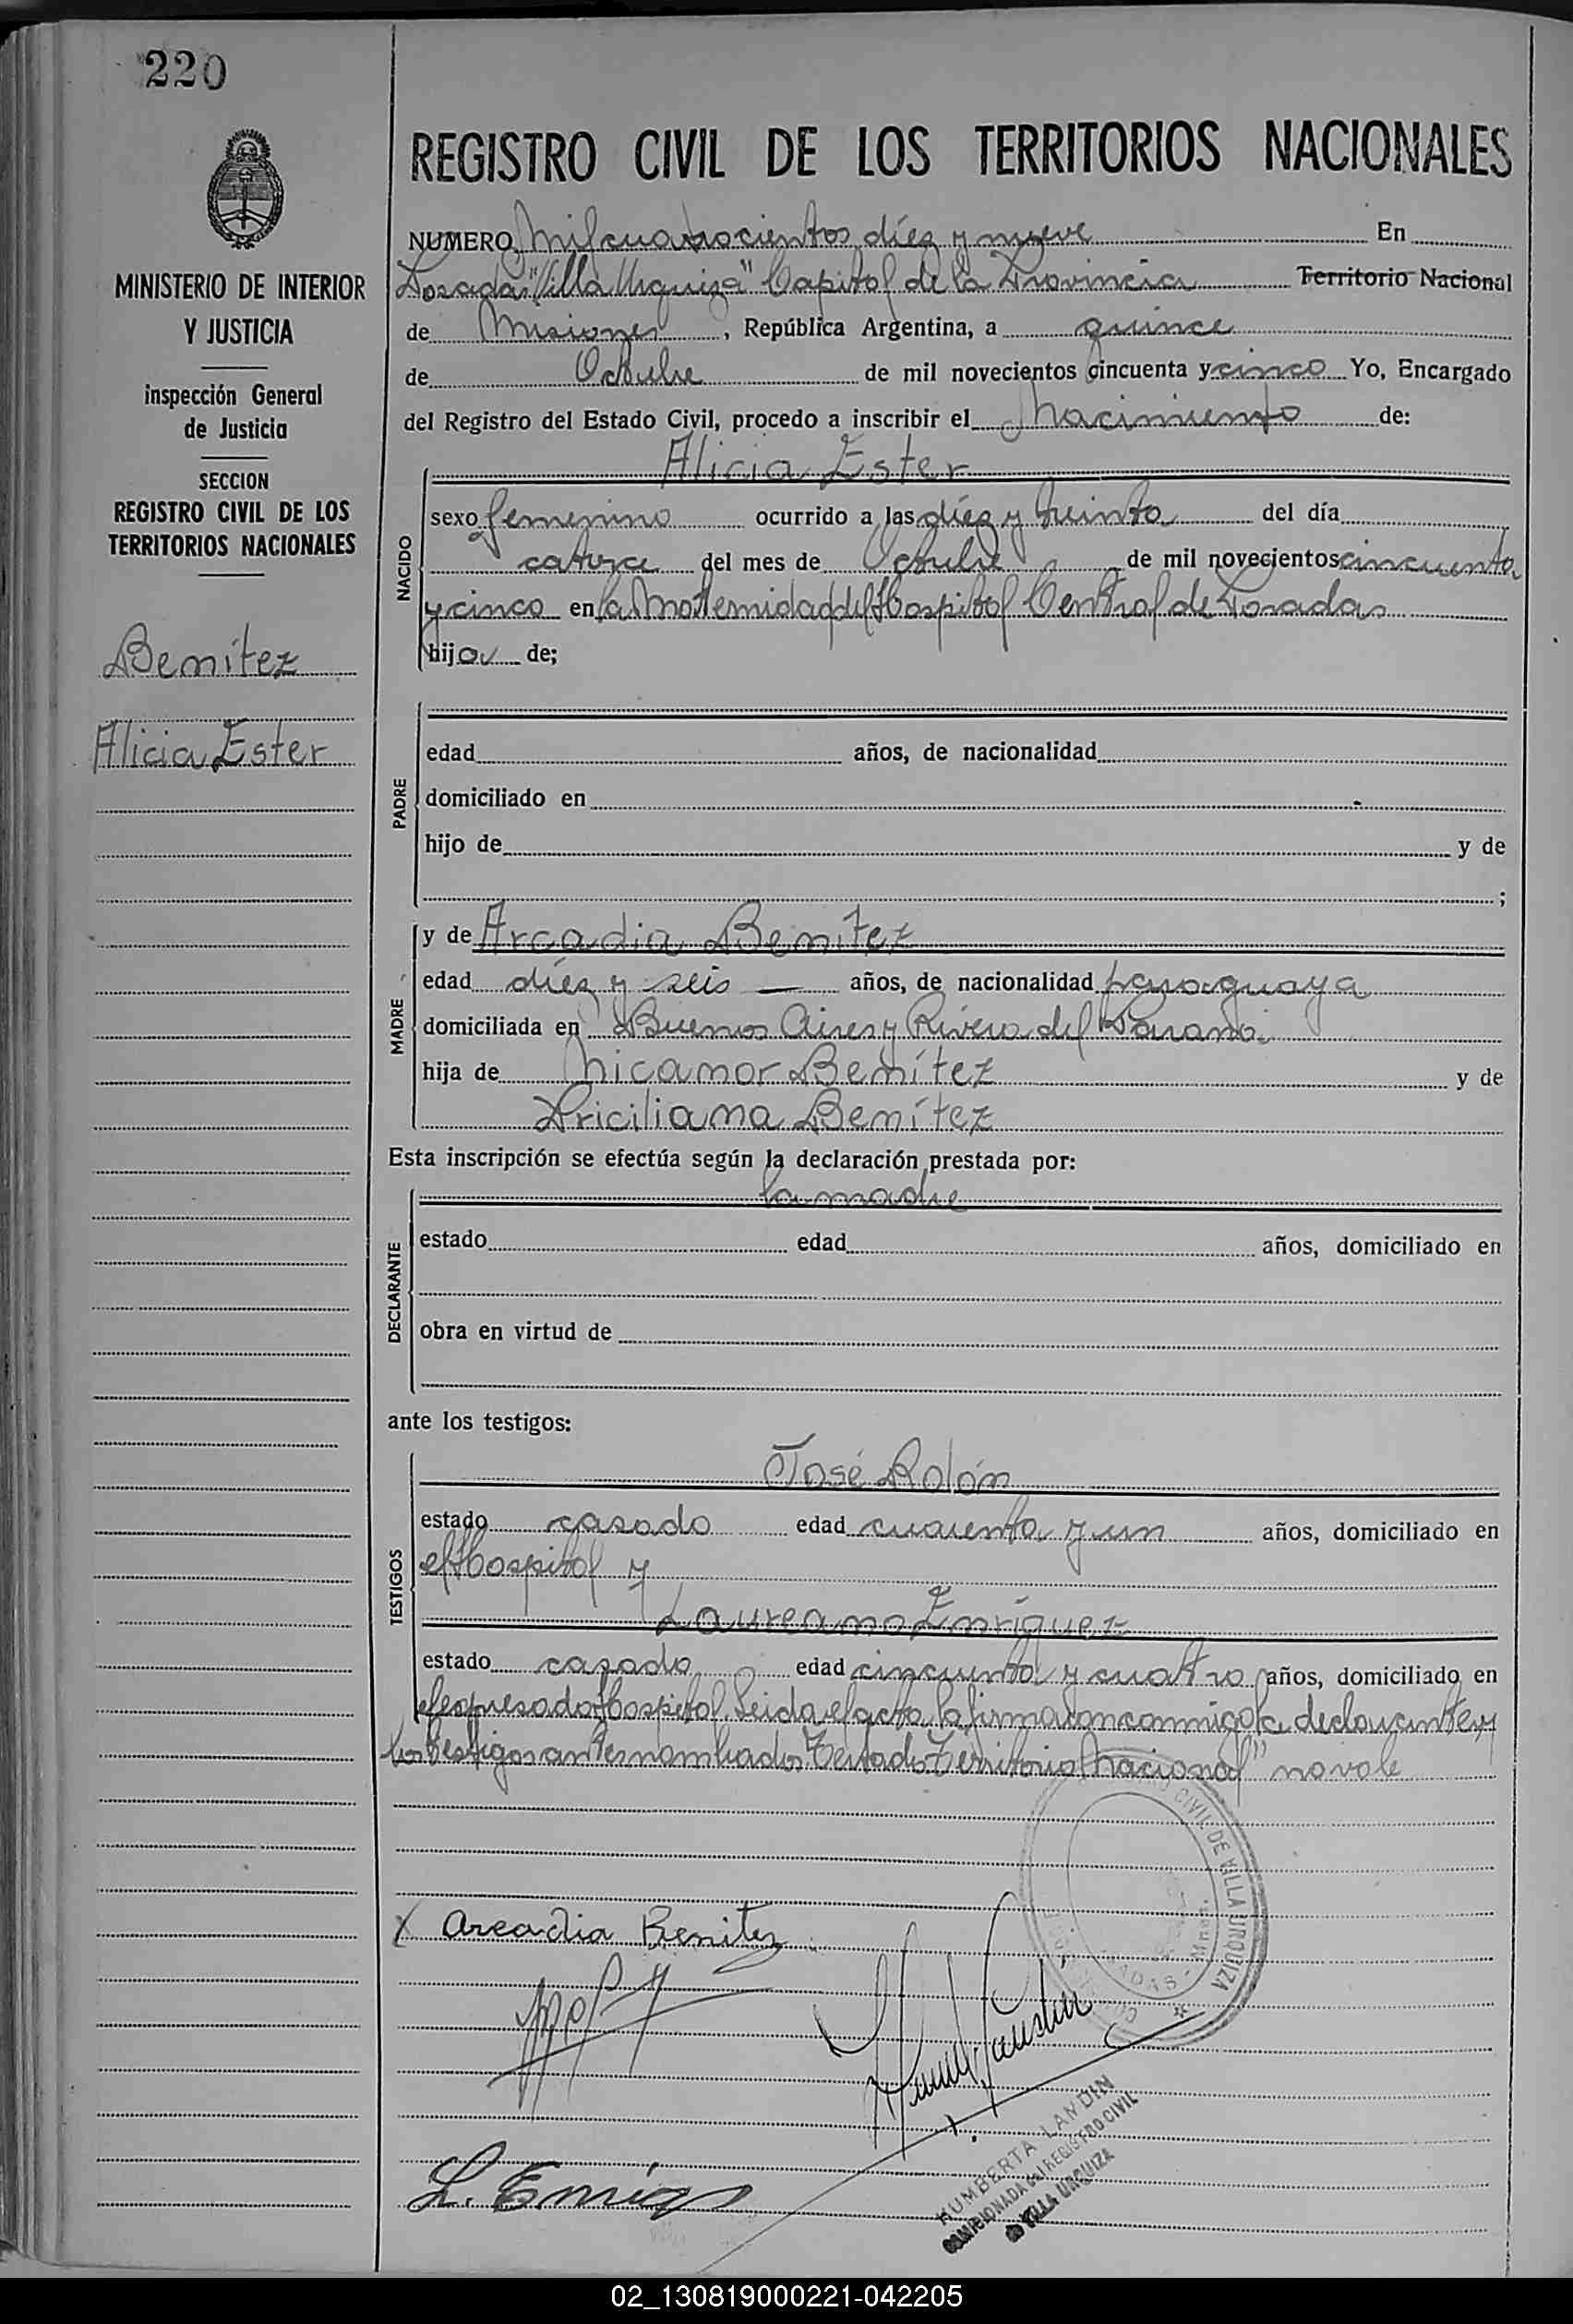 220
MINISTERIO DE INTERIOR
Y JUSTICIA
inspección General
de Justicia
SECCION
REGISTRO CIVIL DE LOS
TERRITORIOS NACIONALES
Benítez
Alicia Ester
REGISTRO CIVIL DE LOS TERRITORIOS NACIONALES
NUMERO Mil cuatrocientos diez y nueve En
Posadas "Villa Urquiza" Capital de la Provincia Territorio Nacional
de Misiones, República Argentina, a quince
de Octubre de mil novecientos cincuenta y cinco Yo, Encargado
del Registro del Estado Civil, procedo a inscribir el Nacimiento de:
NACIDO
Alicia Ester
sexo femenino ocurrido a las diez y treinta del día
catorce del mes de Octubre de mil novecientos cincuenta
y cinco en la Maternidad del Hospital Central de Posadas
hija de;
PADRE
edad años, de nacionalidad
domiciliado en
hijo de y de
;
MADRE
y de Arcadia Benítez
edad diez y seis — años, de nacionalidad paraguaya
domiciliada en Buenos Aires y Rivera del Paraná
hija de Nicanor Benítez y de
Priciliana Benítez
Esta inscripción se efectúa según la declaración prestada por:
DECLARANTE
la madre
estado edad años, domiciliado en
obra en virtud de
ante los testigos:
TESTIGOS
José Rolón
estado casado edad cuarenta y un años, domiciliado en
el Hospital y
Laureano Enríquez
estado casado edad cincuenta y cuatro años, domiciliado en
el expresado Hospital. Leida el acta la firmaron conmigo la declarante y
los testigos antes nombrados. Testado "Territorio Nacional" no vale
CIVIL DE VILLA URQUIZA
X Arcadia Benitez
HUMBERTA LANDIN
COMISIONADA del REGISTRO CIVIL
de VILLA URQUIZA
02_130819000221-042205